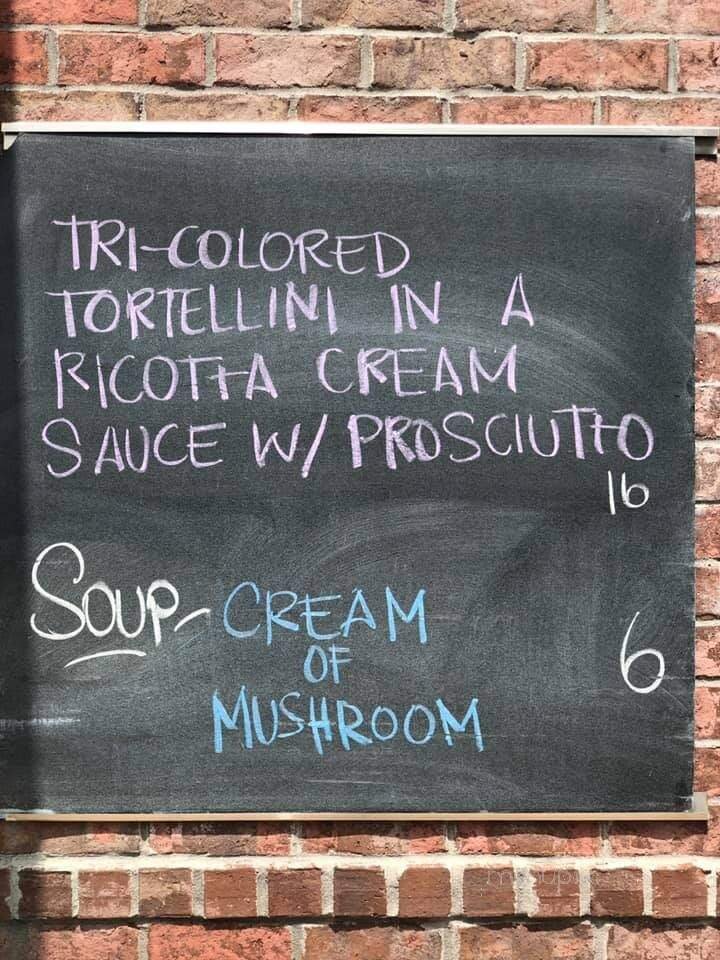 TRI-COLORED
TORTELLINI IN A
RICOTTA CREAM
SAUCE W/ PROSCIUTTO
16
SOUP- CREAM
OF
MUSHROOM
6